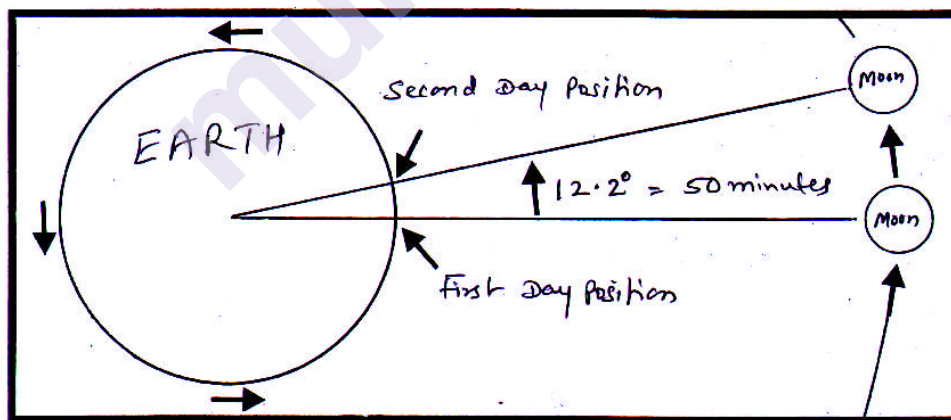 EARTH
Second Day Position
Moon
12.2° = 50 minutes
Moon
First Day Position